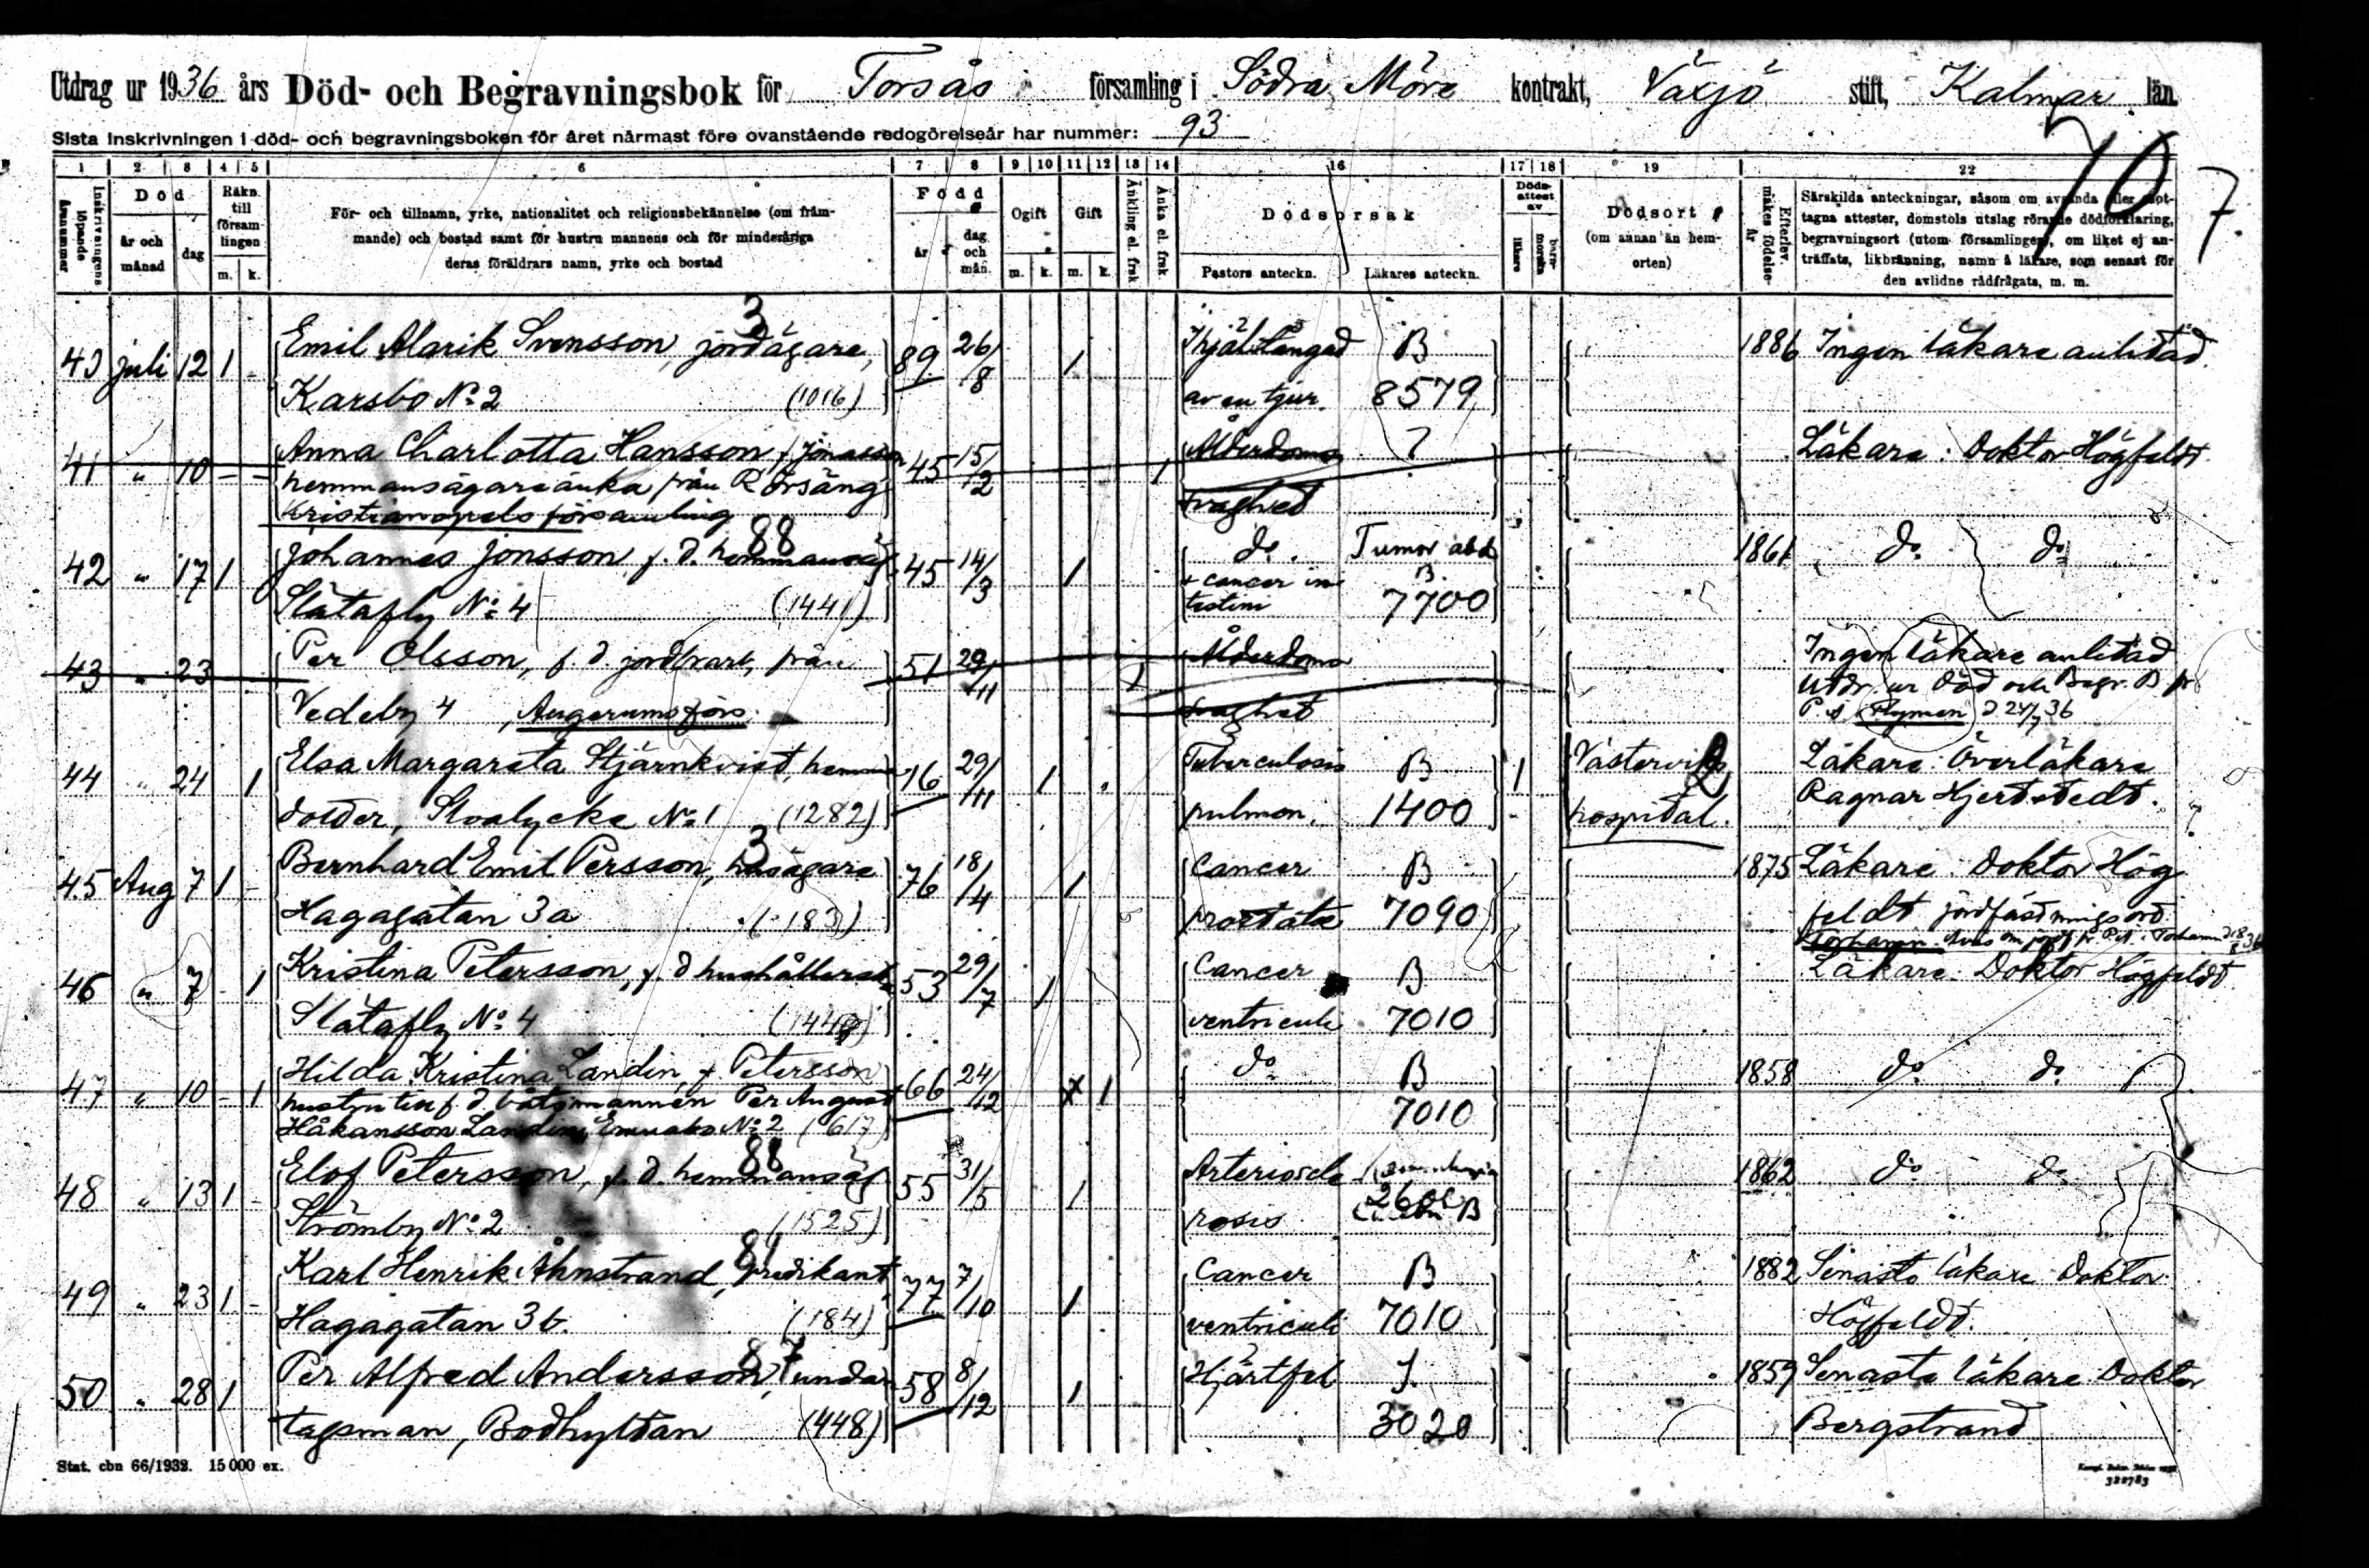 Utdrag ur 1936 års Död- och Begravningsbok för Torsås församling i Södra Möre kontrakt, Växjö stift, Kalmar län.
Sista inskrivningen i död- och begravningsboken för året närmast före ovanstående redogörelseår har nummer: 93
10 7.
1 2 3 4 5 6 7 8 9 10 11 12 13 14 16 17 18 19 22
Inskrivningens löpande årsnummer
Död
år och månad
dag
Räkn. till församlingen
m. k.
För- och tillnamn, yrke, nationalitet och religionsbekännelse (om främ-
mande) och bostad samt för hustru mannens och för minderåriga
deras föräldrars namn, yrke och bostad
Född
år
dag och mån.
Ogift
m. k.
Gift
m. k.
Änkling el. frsk
Änka el. frsk
Dödsorsak
Pastors anteckn.
Läkares anteckn.
Dödsattest av
läkare
barnmorska
Dödsort
(om annan än hem-
orten)
Efterlev. makes födelseår
Särskilda anteckningar, såsom om avsända eller mot-
tagna attester, domstols utslag rörande dödförklaring,
begravningsort (utom församlingen), om liket ej an-
träffats, likbränning, namn å läkare, som senast för
den avlidne rådfrågats, m. m.
3
40 juli 12 1 - Emil Alarik Svensson, jordägare, 89 26/8 1 Ihjälstångad B 1886 Ingen läkare anlitad.
Karsbo No 2 (1016) av en tjur. 8579
41 " 10 - - Anna Charlotta Hansson, f. Jönasson 45 15/2 1 Ålderdoms ? Läkare: Doktor Högfeldt
hemmansägareänka från Rörsäng
Kristianopels församling svaghet
88
42 " 17 1 Johannes Jonsson f. d. hemmansäg 45 14/3 1 do. Tumor abd 1861 do do
Slätafly No 4 (1441) + cancer in testini B. 7700
43 " 23 Per Olsson, f. d. jordbrark, från 51 29/11 1 Ålderdoms Ingen läkare anlitad
Utdr. ur Död och Begr. B fr
Vedeby 4, Augerums förs. svaghet P.ä Flymen d 24/7 36
44 " 24 1 Elsa Margareta Stjärnkvist, hemma 16 29/11 1 Tuberculosis B 1 Västerviks Läkare: Överläkare
dotter, Stoalycke No 1 (1282) pulmon. 1400 - hospital. Ragnar Hjertstedt.
3
45 Aug 7 1 - Bernhard Emil Persson, husägare 76 18/4 1 Cancer B 1875 Läkare: Doktor Hög
Hagagatan 3a (183) prostatæ 7090 feldt jordfästningsort
Torhamn
46 " 7 - 1 Kristina Petersson, f. d hushållerska 53 29/7 1 Cancer B Läkare: Doktor Högfeldt
Slätafly No 4 ventriculi 7010
47 " 10 - 1 Hilda Kristina Landin, f. Petersson 66 24/12 x 1 do B 1858 do do
hustru till f. d. båtsmannen Per August 7010
Håkansson Landin, No 2 (617)
88
48 " 13 1 - Elof Petersson, f. d. hemmansäg 55 31/5 1 Arterioscle 1862 do do
Strömby No 2 (1525) rosis B
81
49 " 23 1 - Karl Henrik Åhnstrand, predikant, 77 7/10 1 Cancer B 1882 Senaste läkare Doktor
Hagagatan 3b. (184) ventriculi 7010 Högfeldt.
87
50 " 28 1 Per Alfred Andersson, undan 58 8/12 1 Hjärtfel J. 1859 Senaste läkare Doktor
tagsman, Bodhyltan (448) 3020 Bergstrand
Stat. cbn 66/1932. 15 000 ex.
322783